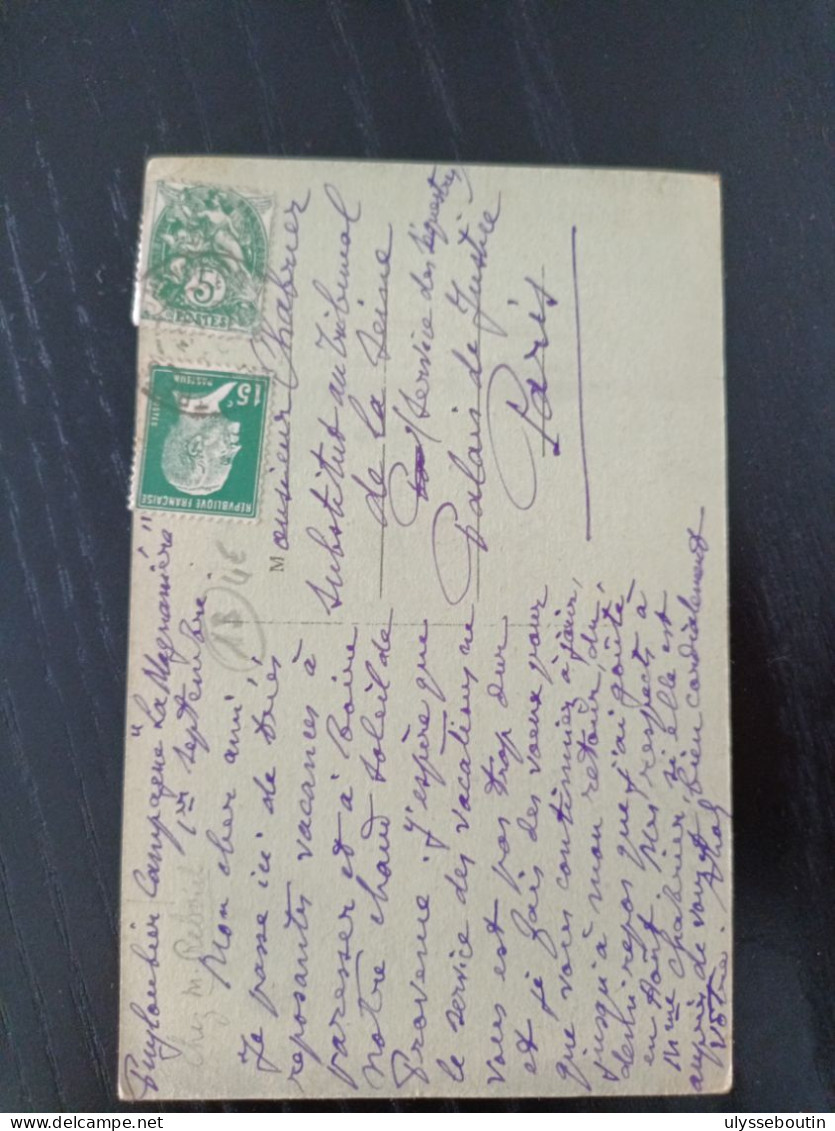 Puyloubier Campagne "La Magnanière"
1er septembre.
Chez M.
Mon cher ami,
Je passe ici de très
reposantes vacances à
paresser et à boire
notre chaud soleil de
Provence. J'espère que
le service des vacations ne
vous est pas trop dur
et je fais des voeux pour
que vous continuiez à jouir,
jusqu'à mon retour, du
demi repos que j'ai goûté
en Août. Mes respects à
Mme Chabrier, si elle est
auprès de vous, et bien cordialement
vôtre.
18
4E
Monsieur Chabrier
Substitut au Tribunal
de la Seine
(Service des séquestres)
Palais de Justice
Paris
5c
POSTES
15c
PASTEUR
POSTES
REPUBLIQUE FRANÇAISE
ulysseboutin